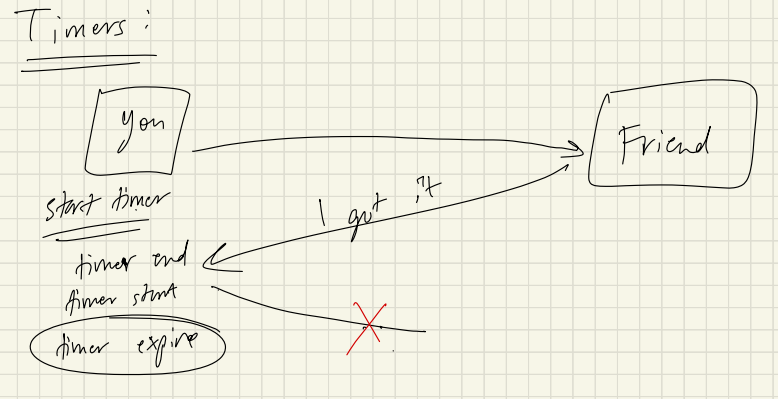 Timers:
you
Friend
start timer
I got it
timer end
timer start
timer expire